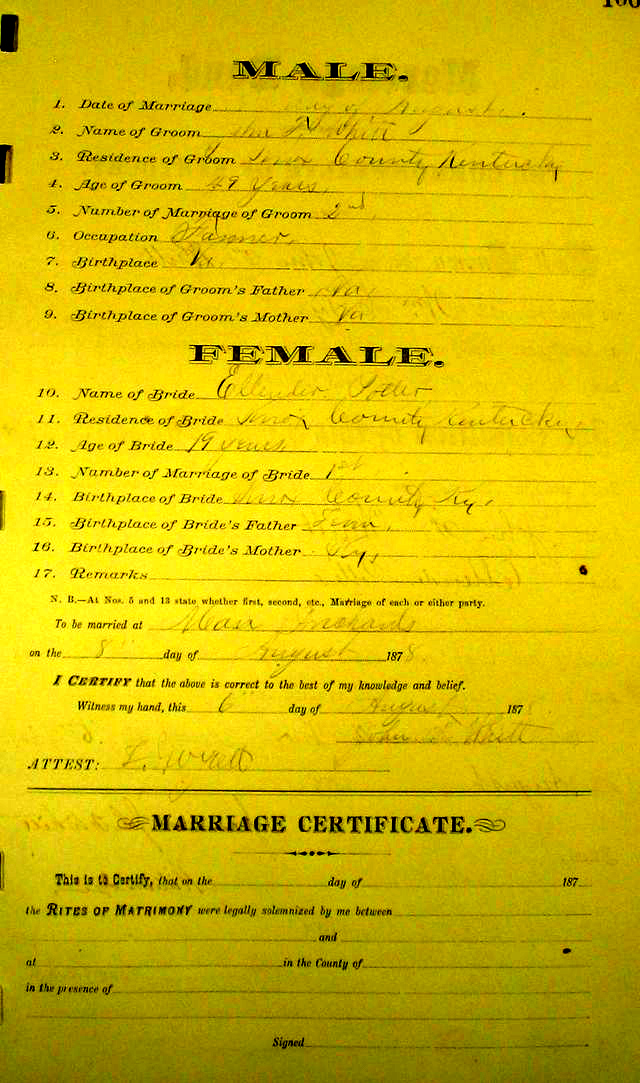 MALE.
1. Date of Marriage day of August
2. Name of Groom F. White
3. Residence of Groom Knox County Kentucky
4. Age of Groom 49 Years,
5. Number of Marriage of Groom 2nd,
6. Occupation Farmer,
7. Birthplace
8. Birthplace of Groom's Father Va,
9. Birthplace of Groom's Mother Va
FEMALE.
10. Name of Bride Ellender Potter
11. Residence of Bride Knox County Kentucky,
12. Age of Bride 19 years
13. Number of Marriage of Bride 1st
14. Birthplace of Bride Knox County Ky,
15. Birthplace of Bride's Father Tenn,
16. Birthplace of Bride's Mother Ky,
17. Remarks
N. B.—At Nos. 5 and 13 state whether first, second, etc., Marriage of each or either party.
To be married at
on the 8 day of August 1878
I CERTIFY that the above is correct to the best of my knowledge and belief.
Witness my hand, this 6 day of August 1878
White
ATTEST:
MARRIAGE CERTIFICATE.
This is to Certify, that on the day of 187
the RITES OF MATRIMONY were legally solemnized by me between
and
at in the County of
in the presence of
Signed